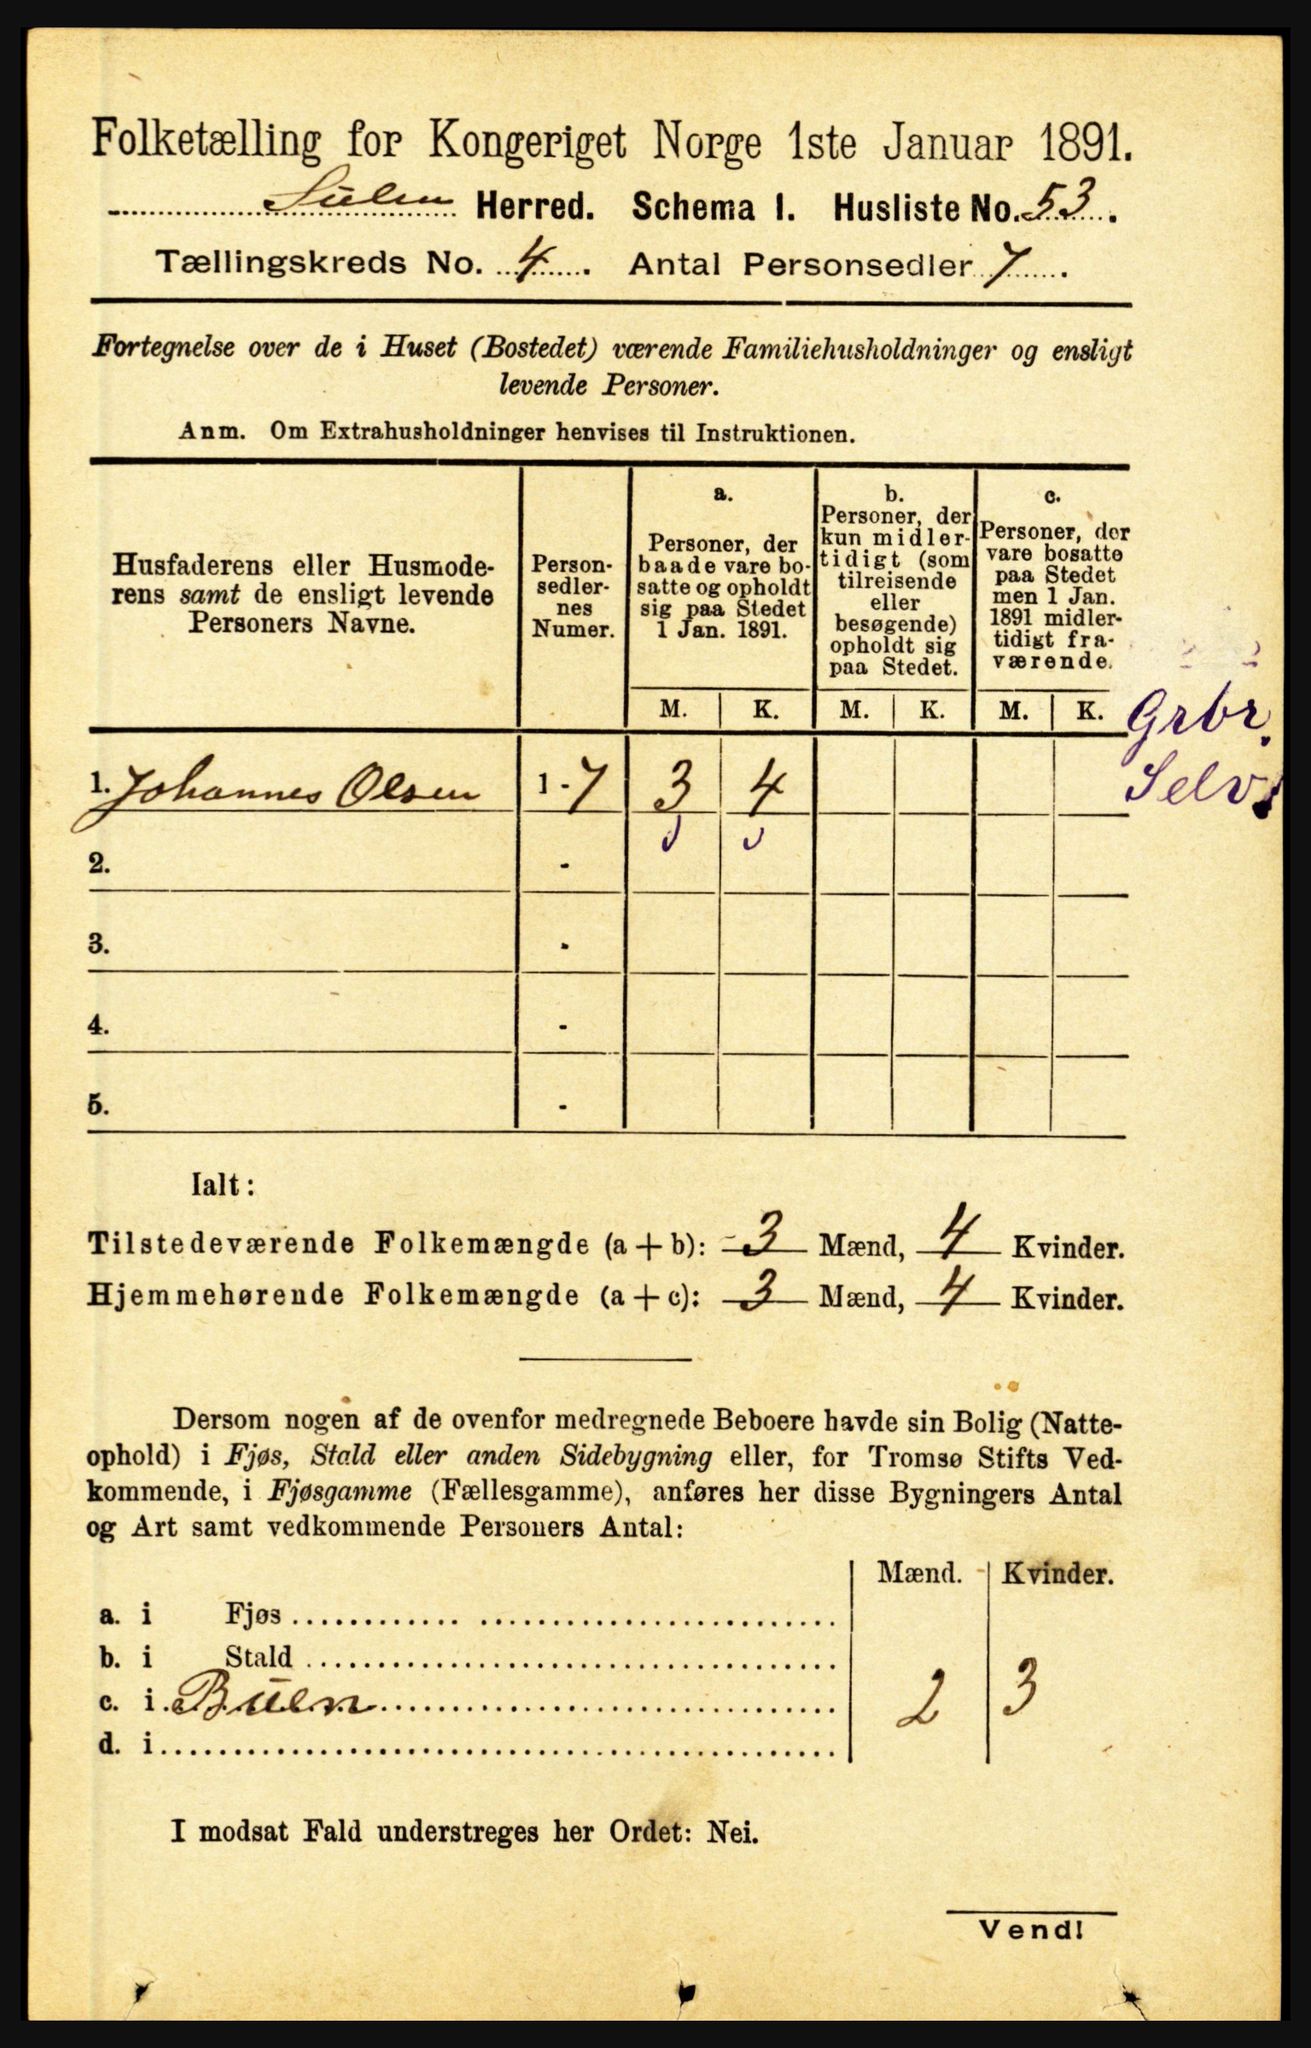 Folketælling for Kongeriget Norge 1ste Januar 1891.
Sulen Herred. Schema I. Husliste No. 53.
Tællingskreds No. 4. Antal Personsedler 7.
Fortegnelse over de i Huset (Bostedet) værende Familiehusholdninger og ensligt
levende Personer.
Anm. Om Extrahusholdninger henvises til Instruktionen.
Husfaderens eller Husmode-
rens samt de ensligt levende
Personers Navne.
Person-
sedler-
nes
Numer.
a.
Personer, der
baade vare bo-
satte og opholdt
sig paa Stedet
1 Jan. 1891.
b.
Personer, der
kun midler-
tidigt (som
tilreisende
eller
besøgende)
opholdt sig
paa Stedet.
c.
Personer, der
vare bosatte
paa Stedet
men 1 Jan.
1891 midler-
tidigt fra-
værende.
M. K. M. K. M. K.
Grbr.
Selv.
1. Johannes Olsen 1 - 7 3 4
2. -
3. -
4. -
5. -
Ialt:
Tilstedeværende Folkemængde (a + b): 3 Mænd, 4 Kvinder.
Hjemmehørende Folkemængde (a + c): 3 Mænd, 4 Kvinder.
Dersom nogen af de ovenfor medregnede Beboere havde sin Bolig (Natte-
ophold) i Fjøs, Stald eller anden Sidebygning eller, for Tromsø Stifts Ved-
kommende, i Fjøsgamme (Fællesgamme), anføres her disse Bygningers Antal
og Art samt vedkommende Personers Antal:
Mænd. Kvinder.
a. i Fjøs
b. i Stald
c. i Buen 2 3
d. i
I modsat Fald understreges her Ordet: Nei.
Vend!